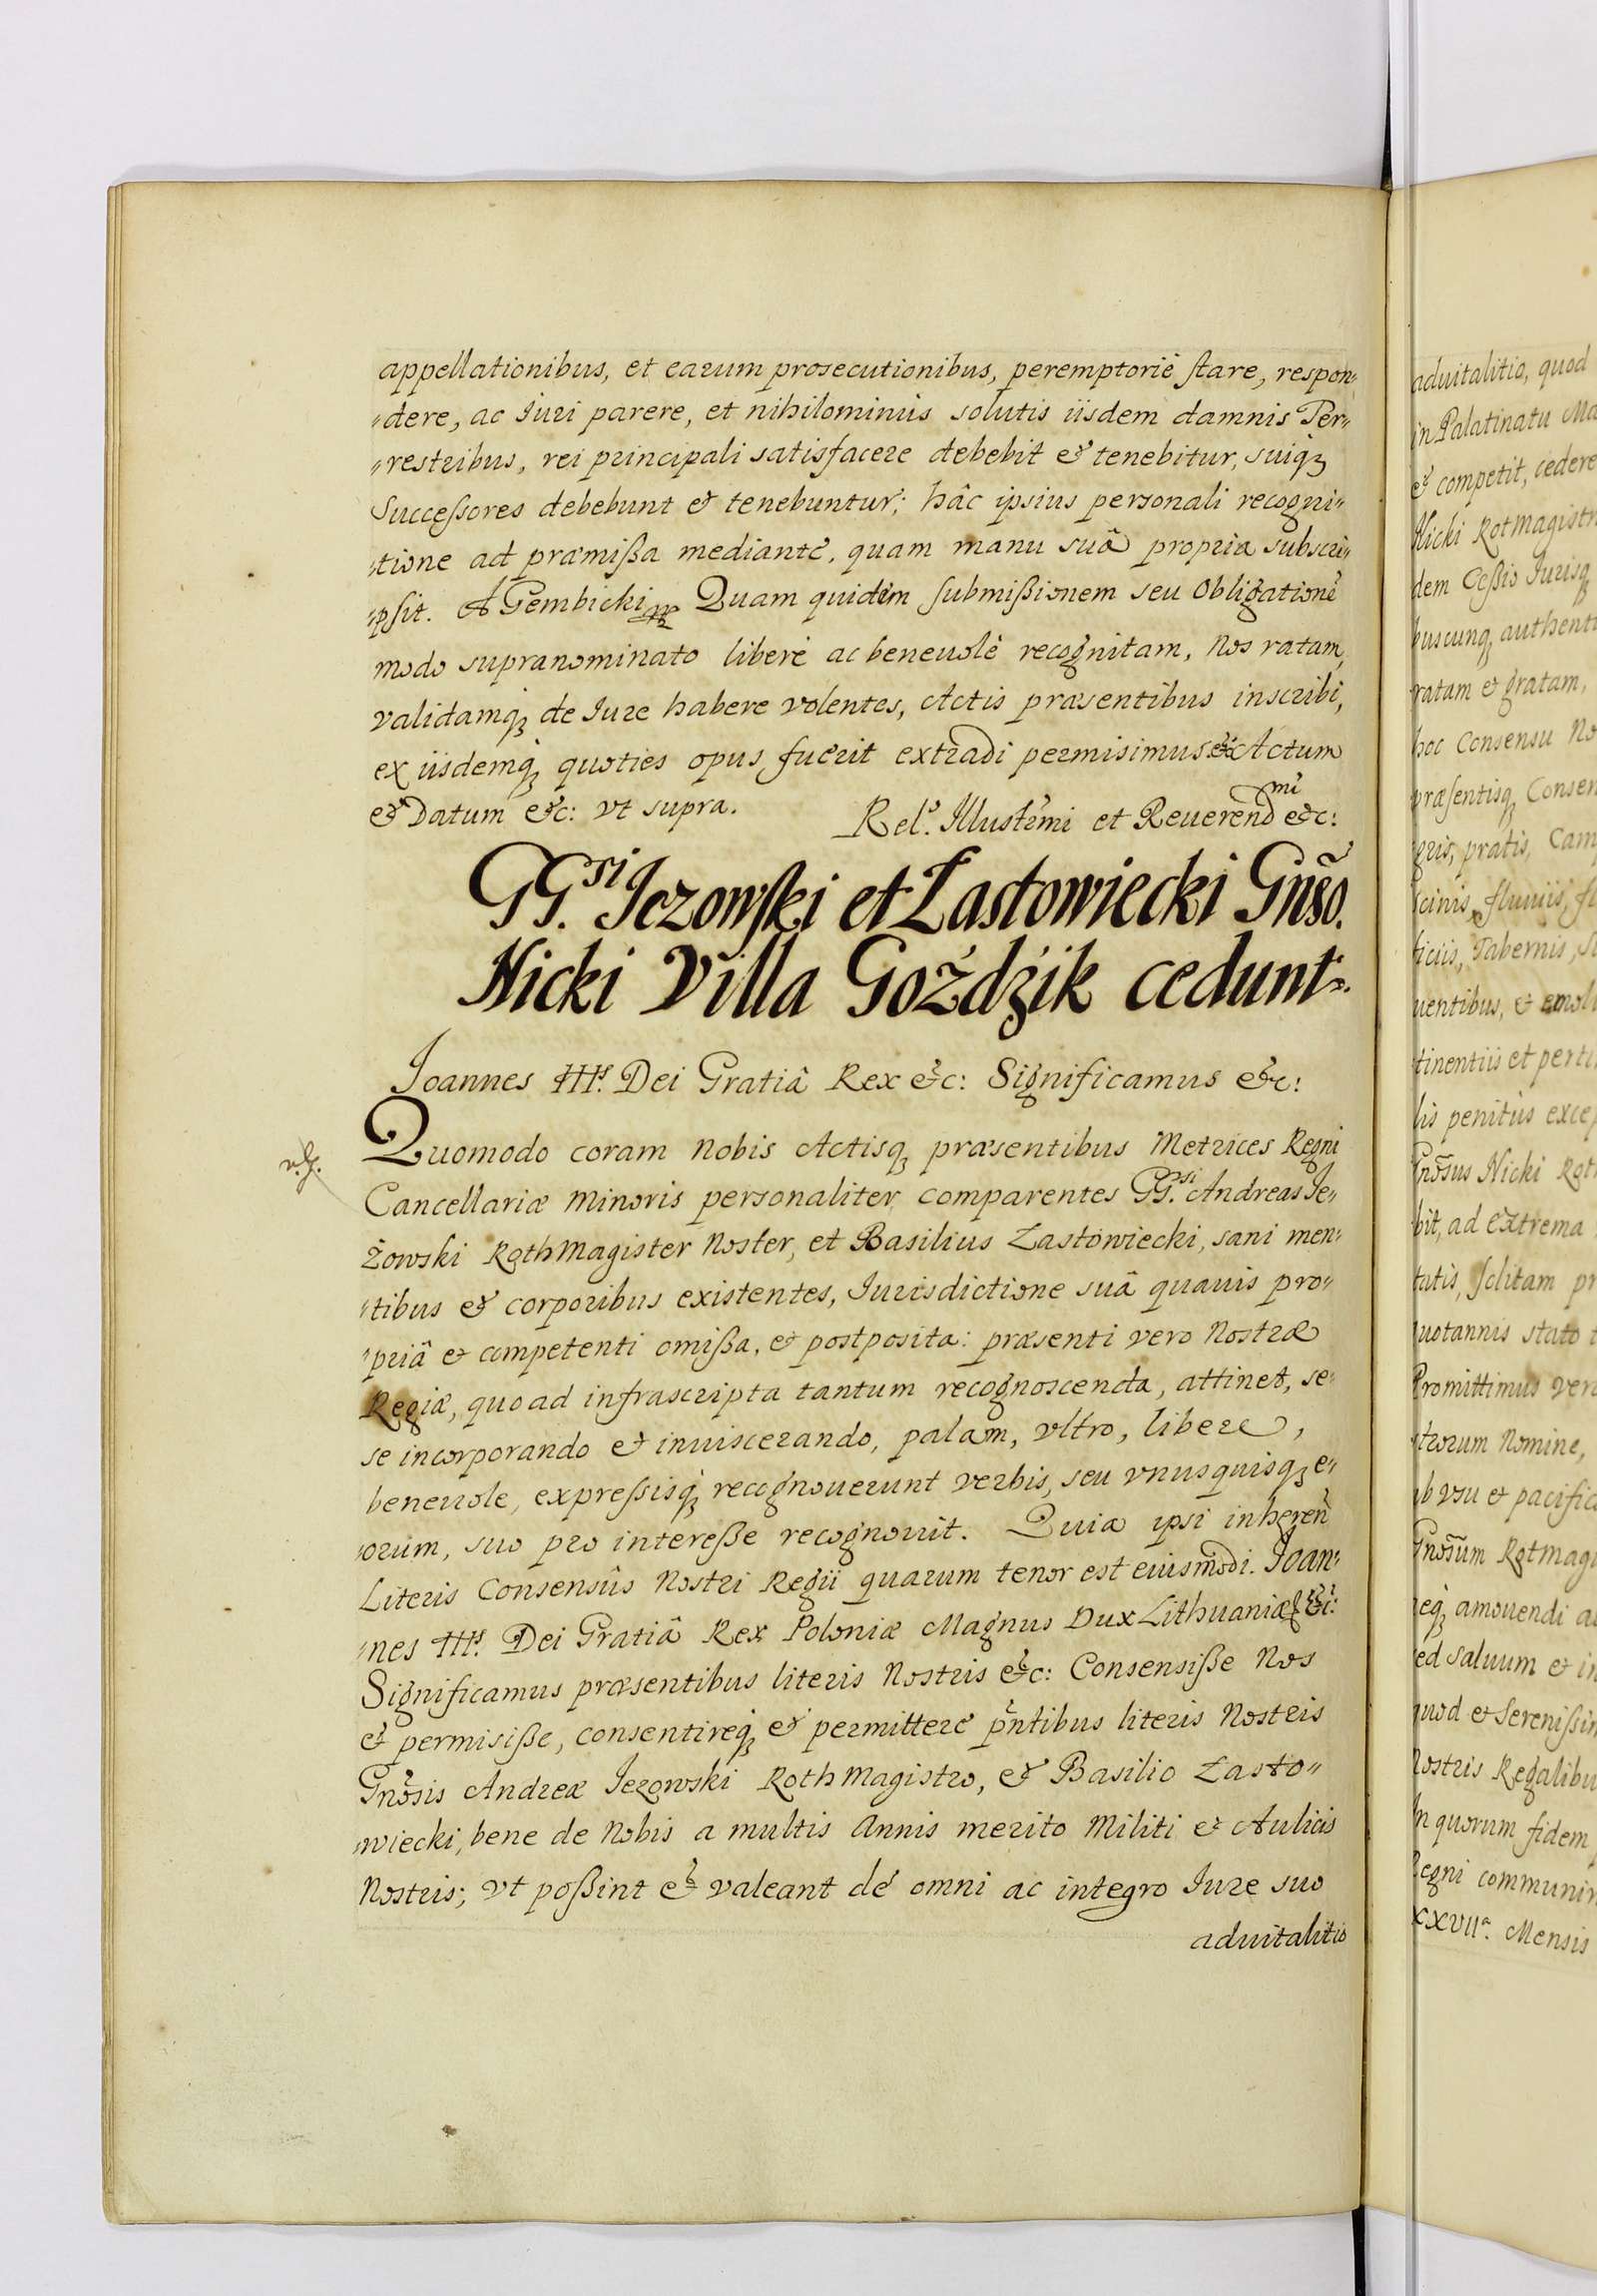 appellationibus, et earum prosecutionibus, peremptoriè stare, respon„
„dere, ac Iuri parere, et nihilominus solutis iisdem damnis Ter„
„restribus, rei principali satisfacere debebit & tenebitur, suiq3
Successores debebunt & tenebuntur; hâc ipsius personali recogni„
„tione ad præmißa mediante, quam manu suâ propria subscri„
„psit. A Gembicki Quam quidem submißionem seu Obligationē
modo supranominato liberè ac beneuolè recognitam, Nos ratam,
validamq3 de Iure habere volentes, Actis præsentibus inscribi,
ex iisdemq3 quoties opus fuerit extradi permisimus &c Actum
& Datum &c: vt supra.
Rel.º Illustrmi et Reuerendmi &c:
GG.si Iezowski et Zastowiecki Gnso.
Nicki Villa Goździk cedunt.
Ioannes IIIs. Dei Gratiâ Rex &c: Significamus &c:
Quomodo coram Nobis Actisq3 præsentibus Metrices Regni
Cancellariæ Minoris personaliter comparentes GG.si Andreas Ie„
żowski RothMagister Noster, et Basilius Zastowiecki, sani men„
„tibus & corporibus existentes, Iurisdictione suâ quauis pro„
„priâ & competenti omißa, & postposita: præsenti vero Nostræ
Regiæ, quoad infrascripta tantum recognoscenda, attinet, se„
se incorporando & inuiscerando, palam, vltro, libere,
beneuole, expressisq3 recognouerunt verbis, seu vnusquisq3 e„
„orum, suo pro intereße recognouit. Quia ipsi inheren
Literis Consensûs Nostri Regii quarum tenor est eiusmodi. Ioan„
„nes IIIs. Dei Gratiâ Rex Poloniæ Magnus Dux Lithuaniæ &c:
Significamus præsentibus literis Nostris &c: Consensiße Nos
& permisiße, consentireq3 & permittere pntibus literis Nostris
Gnosis Andreæ Iezowski RothMagistro, & Basilio Zasto„
„wiecki, bene de Nobis a multis Annis merito Militi & Aulicis
Nostris; vt poßint & valeant de omni ac integro Iure suo
aduitalitio
aduitalitio, quod
in Palatinatu Ma
& competit, cedere
Nicki Rotmagistr
dem Ceßio Iurisq3
buscunq3 authenti
ratam & gratam,
hoc Consensu No
præsentisq3 Consen
gris, pratis, Cam
scinis, fluuiis, fl
ficiis, Tabernis,
uentibus, & emoli
tinentiis et perti
lis penitus exce
Gnosus Nicki Rot
bit, ad extrema
tatis, solitam pr
uotannis stato t
Promittimus ver
strorum Nomine,
ab vsu & pacifica
Gnosum Rotmagi
req3 amouendi a
sed saluum & in
quod & Serenißim
Nostris Regalibu
In quorum fidem
Regni communir
XXVIIa. Mensis